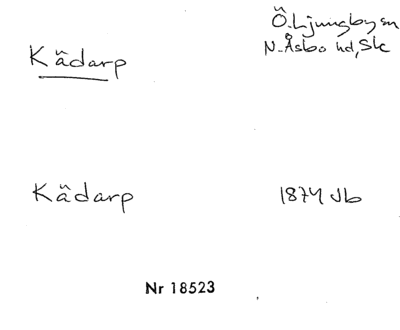 Kâdarp
Ö. Ljungby sn
N. Åsbo hd, Sk
Kâdarp
1874 Jb
Nr 18523